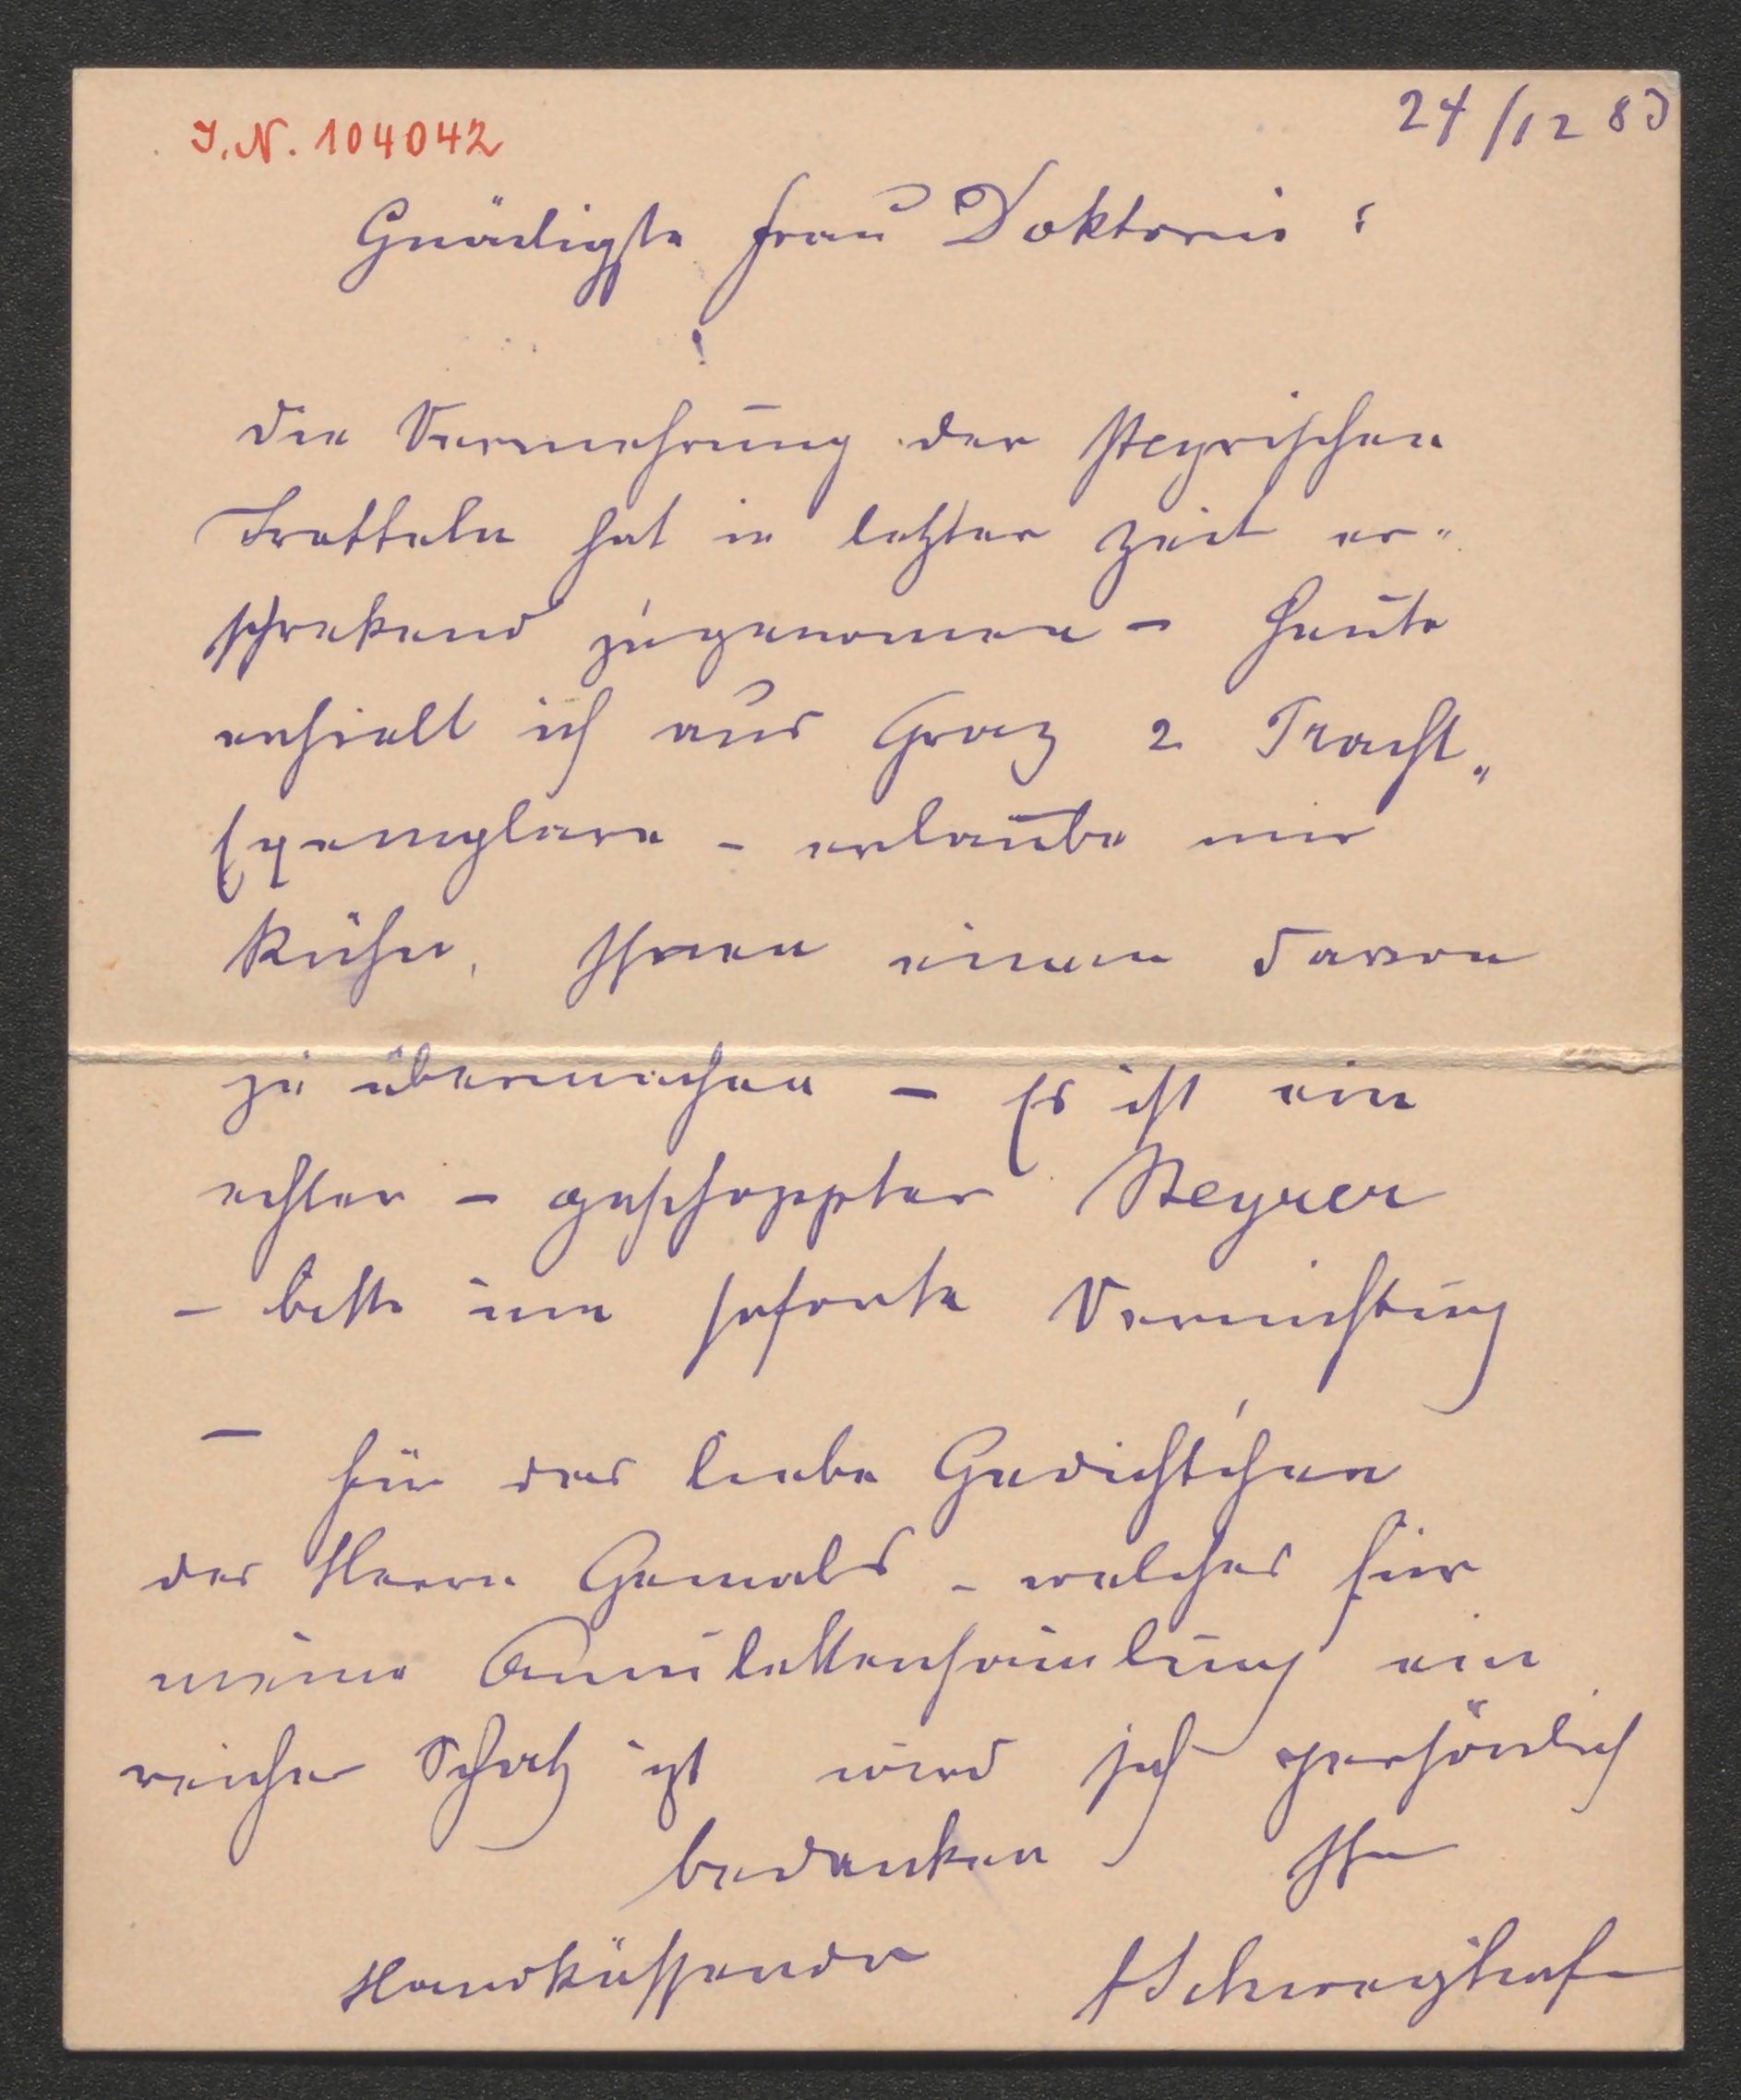 24/12 83
J.N. 104042
Gnädigste Frau Doktorin!
die Vermehrung der steyrischen
Trotteln hat in letzter Zeit er"
schrekend zugenomen – Heute
erhielt ich aus Graz 2 Pracht„
Exemplare – erlaube mir
kühn, Ihnen einen davon
zu übermachen – Es ist ein
echter – geschoppter Steyrer
– bitte um sofortige Vernichtung
– für das liebe Gedichtchen
des Herrn Gemals – welches für
meine Amulettensamlung ein
reicher Schatz ist wird sich persönlich
bedanken Ihr
Handküssender Schweighofer